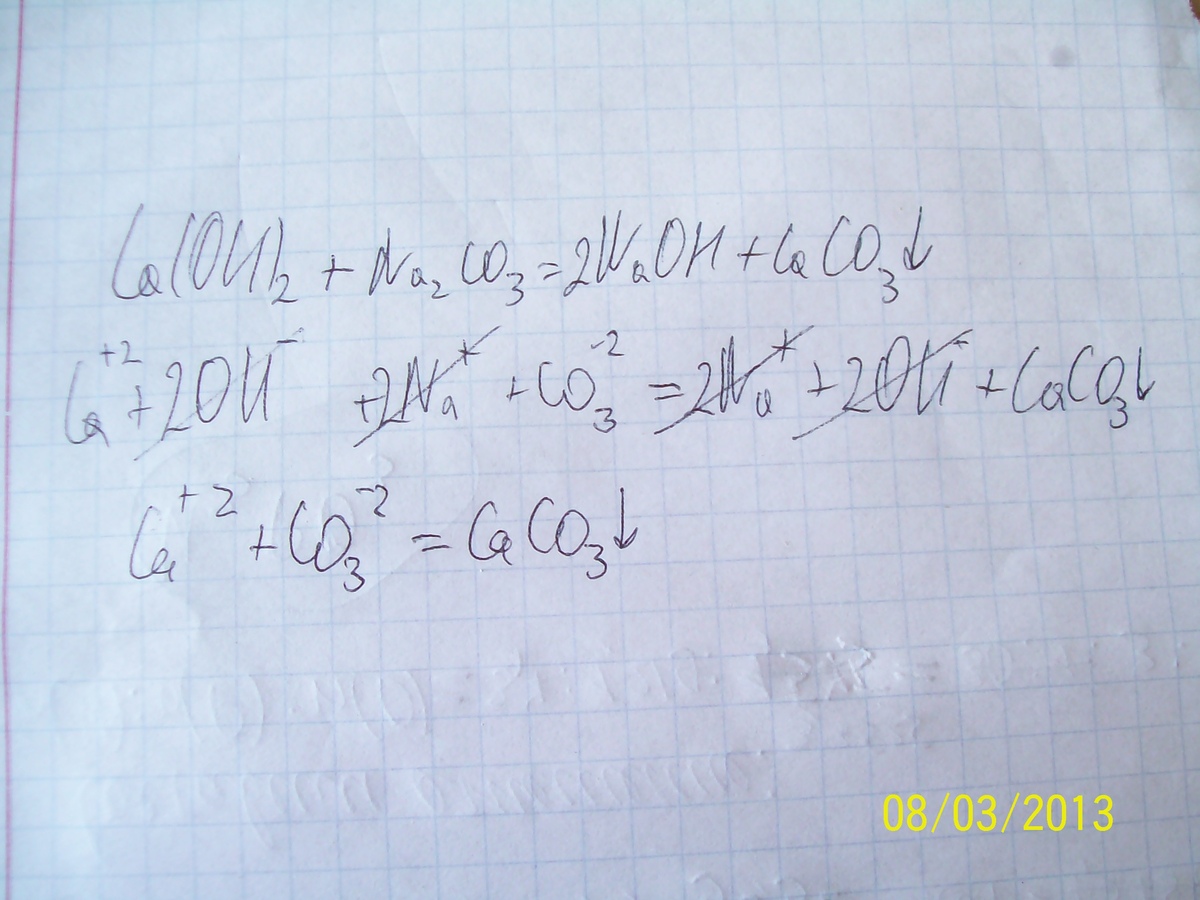 Ca(OH)₂ + Na₂CO₃ = 2NaOH + CaCO₃↓
Ca⁺² + 2OH⁻ + 2Na⁺ + CO₃⁻² = 2Na⁺ + 2OH⁻ + CaCO₃↓
Ca⁺² + CO₃⁻² = CaCO₃↓
08/03/2013